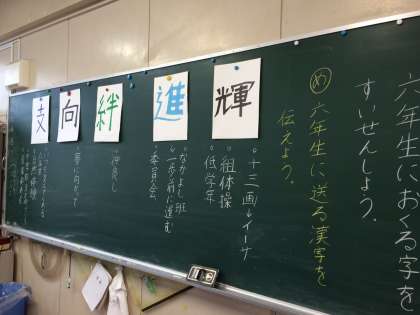 六年生におくる字を
すいせんしよう。
め 六年生に送る漢字を
伝えよう。
輝
組体操
低学年
進
なかよし班
一歩前に進む
委員会
絆
仲良し
向
夢に向かって
支